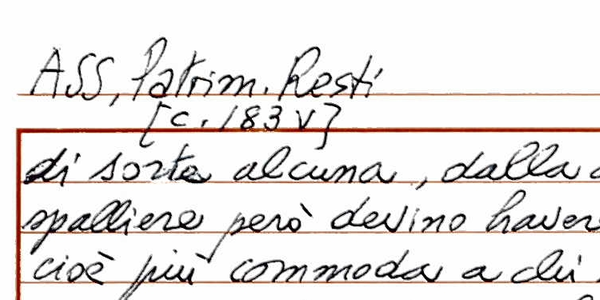 ASS, Patrim. Resti
[c. 183 v]
di sorte alcuna, dalla
spalliere però devino haver
cioè più commoda a chi